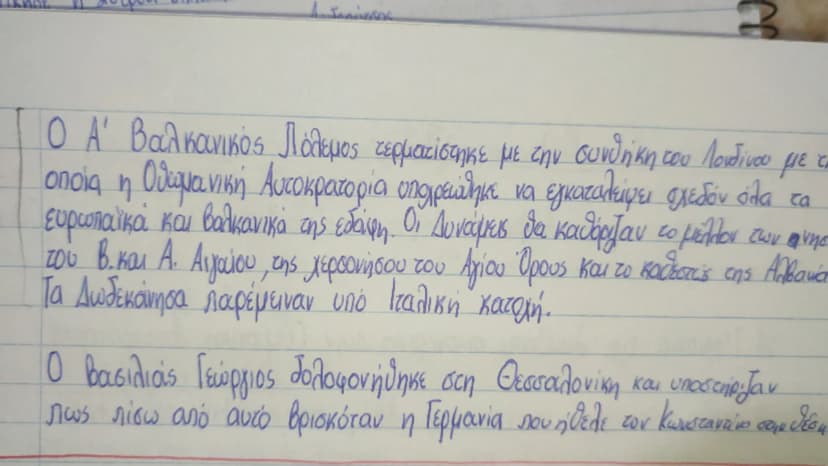 Ο Α' Βαλκανικός Πόλεμος τερματίστηκε με την συνθήκη του Λονδίνου με τ
οποία η Οθωμανική Αυτοκρατορία υποχρεώθηκε να εγκαταλείψει σχεδόν όλα τα
ευρωπαϊκά και βαλκανικά της εδάφη. Οι Δυνάμεις θα καθόριζαν το μέλλον των νησ
του Β. και Α. Αιγαίου, της χερσονήσου του Αγίου Όρους και το καθεστώς της Αλβανί
Τα Δωδεκάνησα παρέμειναν υπό Ιταλική κατοχή.
Ο Βασιλιάς Γεώργιος δολοφονήθηκε στη Θεσσαλονίκη και υποστήριζαν
πως πίσω από αυτό βρισκόταν η Γερμανία που ήθελε τον Κωνσταντίνο στην θέση